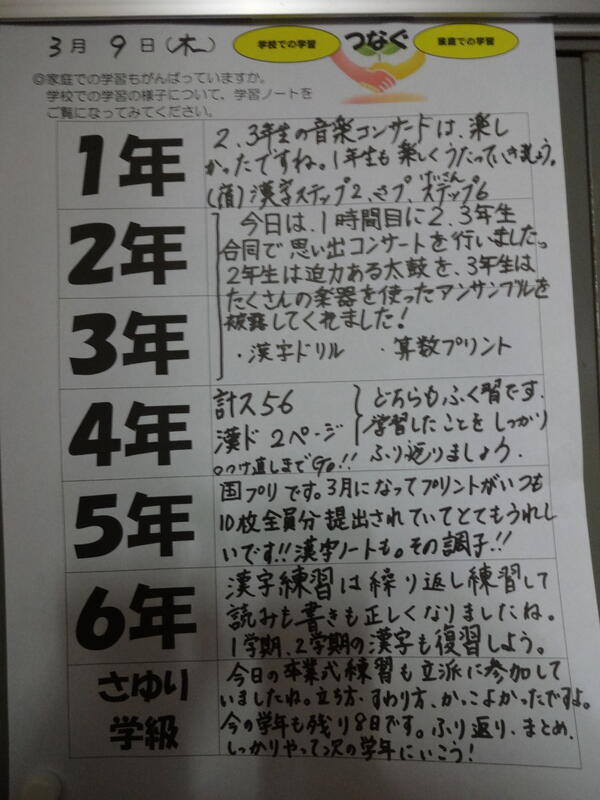 3月 9日(木)
学校での学習
つなぐ
家庭での学習
◎家庭での学習もがんばっていますか。
学校での学習の様子について、学習ノートを
ご覧になってみてください。
1年
2、3年生の音楽コンサートは、楽し
かったですね。1年生も楽しくうたっていきましょう。
(宿)漢字ステップ2、さプ、けいさんステップ6
2年
今日は、1時間目に2、3年生
合同で思い出コンサートを行いました。
2年生は迫力ある太鼓を、3年生は
3年
たくさんの楽器を使ったアンサンブルを
披露してくれました!
・漢字ドリル ・算数プリント
4年
計ス56
漢ド 2ページ
○つけ直しまでGo!!
どちらもふく習です。
学習したことをしっかり
ふり返りましょう。
5年
国プリです。3月になってプリントがいつも
10枚全員分提出されていてとてもうれし
いです!!漢字ノートも。その調子!!
6年
漢字練習は繰り返し練習して
読みも書きも正しくなりましたね。
1学期、2学期の漢字も復習しよう。
さゆり
学級
今日の卒業式練習も立派に参加して
いましたね。立ち方、すわり方、かっこよかったですよ。
今の学年も残り8日です。ふり返り、まとめ、
しっかりやって次の学年にいこう!